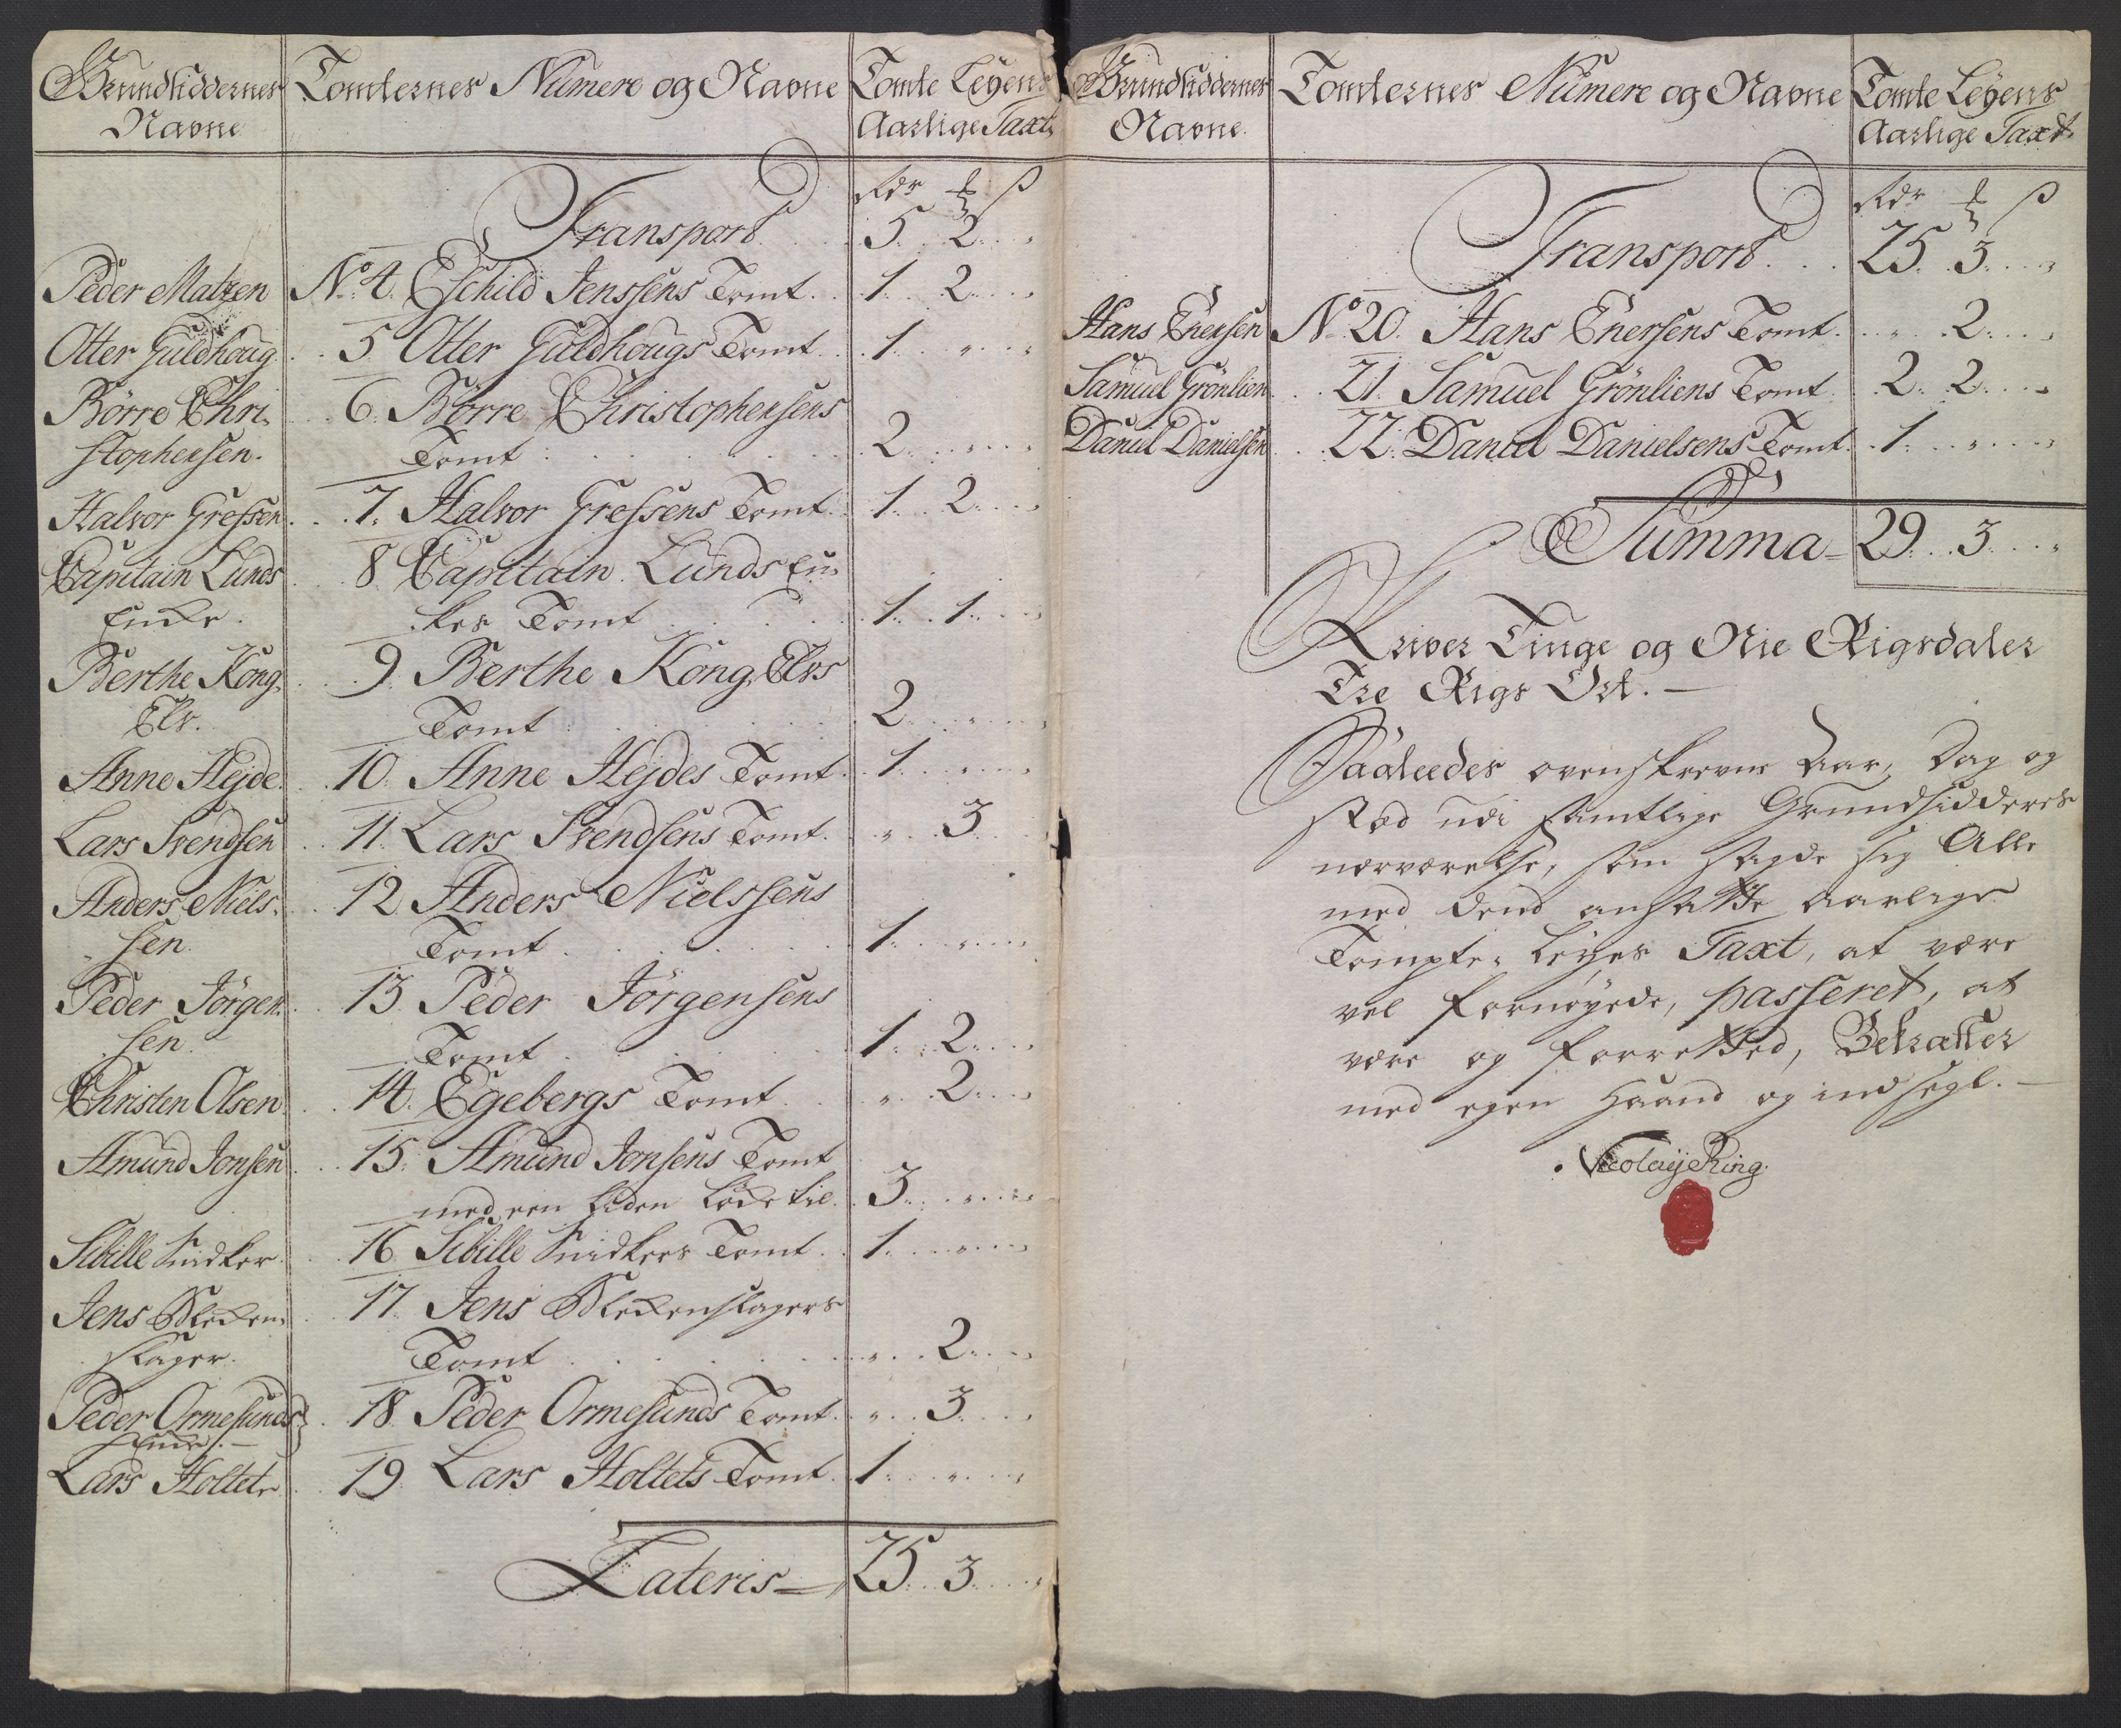 Grundsiddernes Tomternes Numere og Navne Tomte Leyens
Navne Aarlige Taxt
Rdr ß
Transport 5 2
Peder Matzen No 4. Eschild Jenssens Tomt 1 2
Otter Guldhoug 5 Otter Guldhougs Tomt 1
Börre Chri- 6. Börre Christophersens
stophersen. Tomt 2
Halvor Gressen 7. Halvor Gressens Tomt 1 2
Capitain Lunds 8 Capitain Lunds En-
Encke. kes Tomt 1 1
Berthe Kong- 9. Berthe Kong Elvs
Elv. Tomt 2
Anne Hejde 10. Anne Hejdes Tomt 1
Lars Svendsen 11. Lars Svendsens Tomt 3
Anders Niels- 12 Anders Nielssens
sen. Tomt 1
Peder Jörgen- 13. Peder Jörgensens
sen. Tomt 1 2
Christen Olsen 14. Egebergs Tomt 2
Amund Jonsen 15. Amund Jonsens Tomt
med een liden Løcke til 3
Sibille Snidker 16 Sibille Snidkers Tomt 1
Jens Blecken- 17. Jens Bleckenslagers
slager. Tomt 2
Peder Ormesunds 18. Peder Ormesunds Tomt 3
Encke.
Lars Holtet 19 Lars Holtets Tomt 1
Lateris 25 3
Grundsiddernes Tomternes Numere og Navne Tomte Leyens
Navne. Aarlige Taxt.
Rdr ß
Transport 25 3
Hans Enersen No 20. Hans Enersens Tomt 2
Samuel Grönlien 21. Samuel Grönliens Tomt 2 2
Daniel Danielsen 22. Daniel Danielsens Tomt 1
Summa 29 3
Skriver Tiuge og Nie Rigsdaler
Tre Rigs Ort.
Saaleedes ovenskrevne Aar, Dag og
stæd udi samtlige Grundsidderes
nærværelse, som sagde sig Alle
med dend ansatte Aarlige
Tompte Leyes Taxt, at være
vel fornøyede, passeret, at
være og forretted, Bekræfter
med egen Haand og indsegl.
Nicolaij Ring.